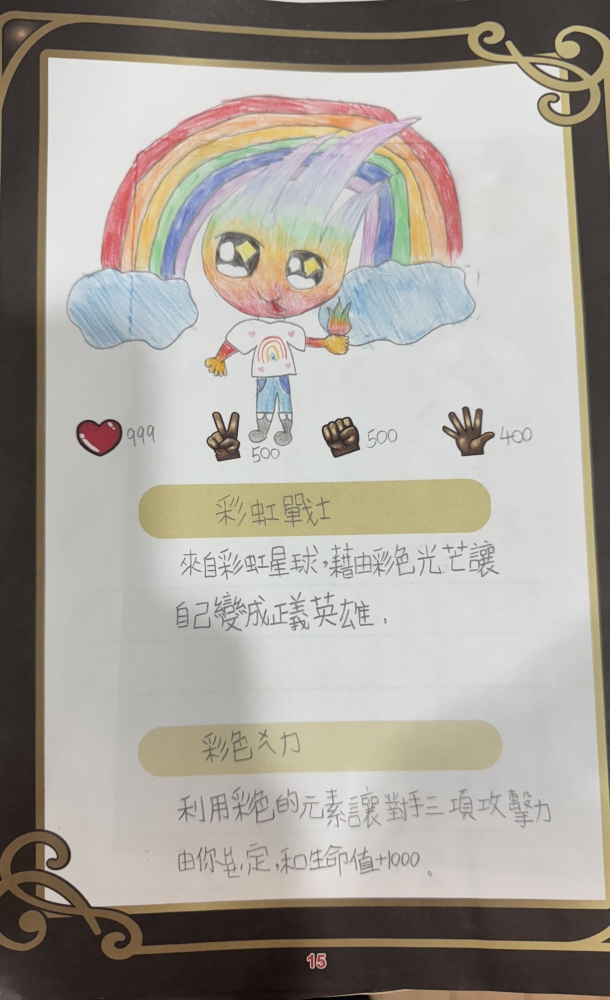 999
500
500
400
彩虹戰士
來自彩虹星球,藉由彩色光芒讓
自己變成正義英雄.
彩色 力
利用彩色的元素讓對手三項攻擊力
由你 定,和生命值+1000。
15